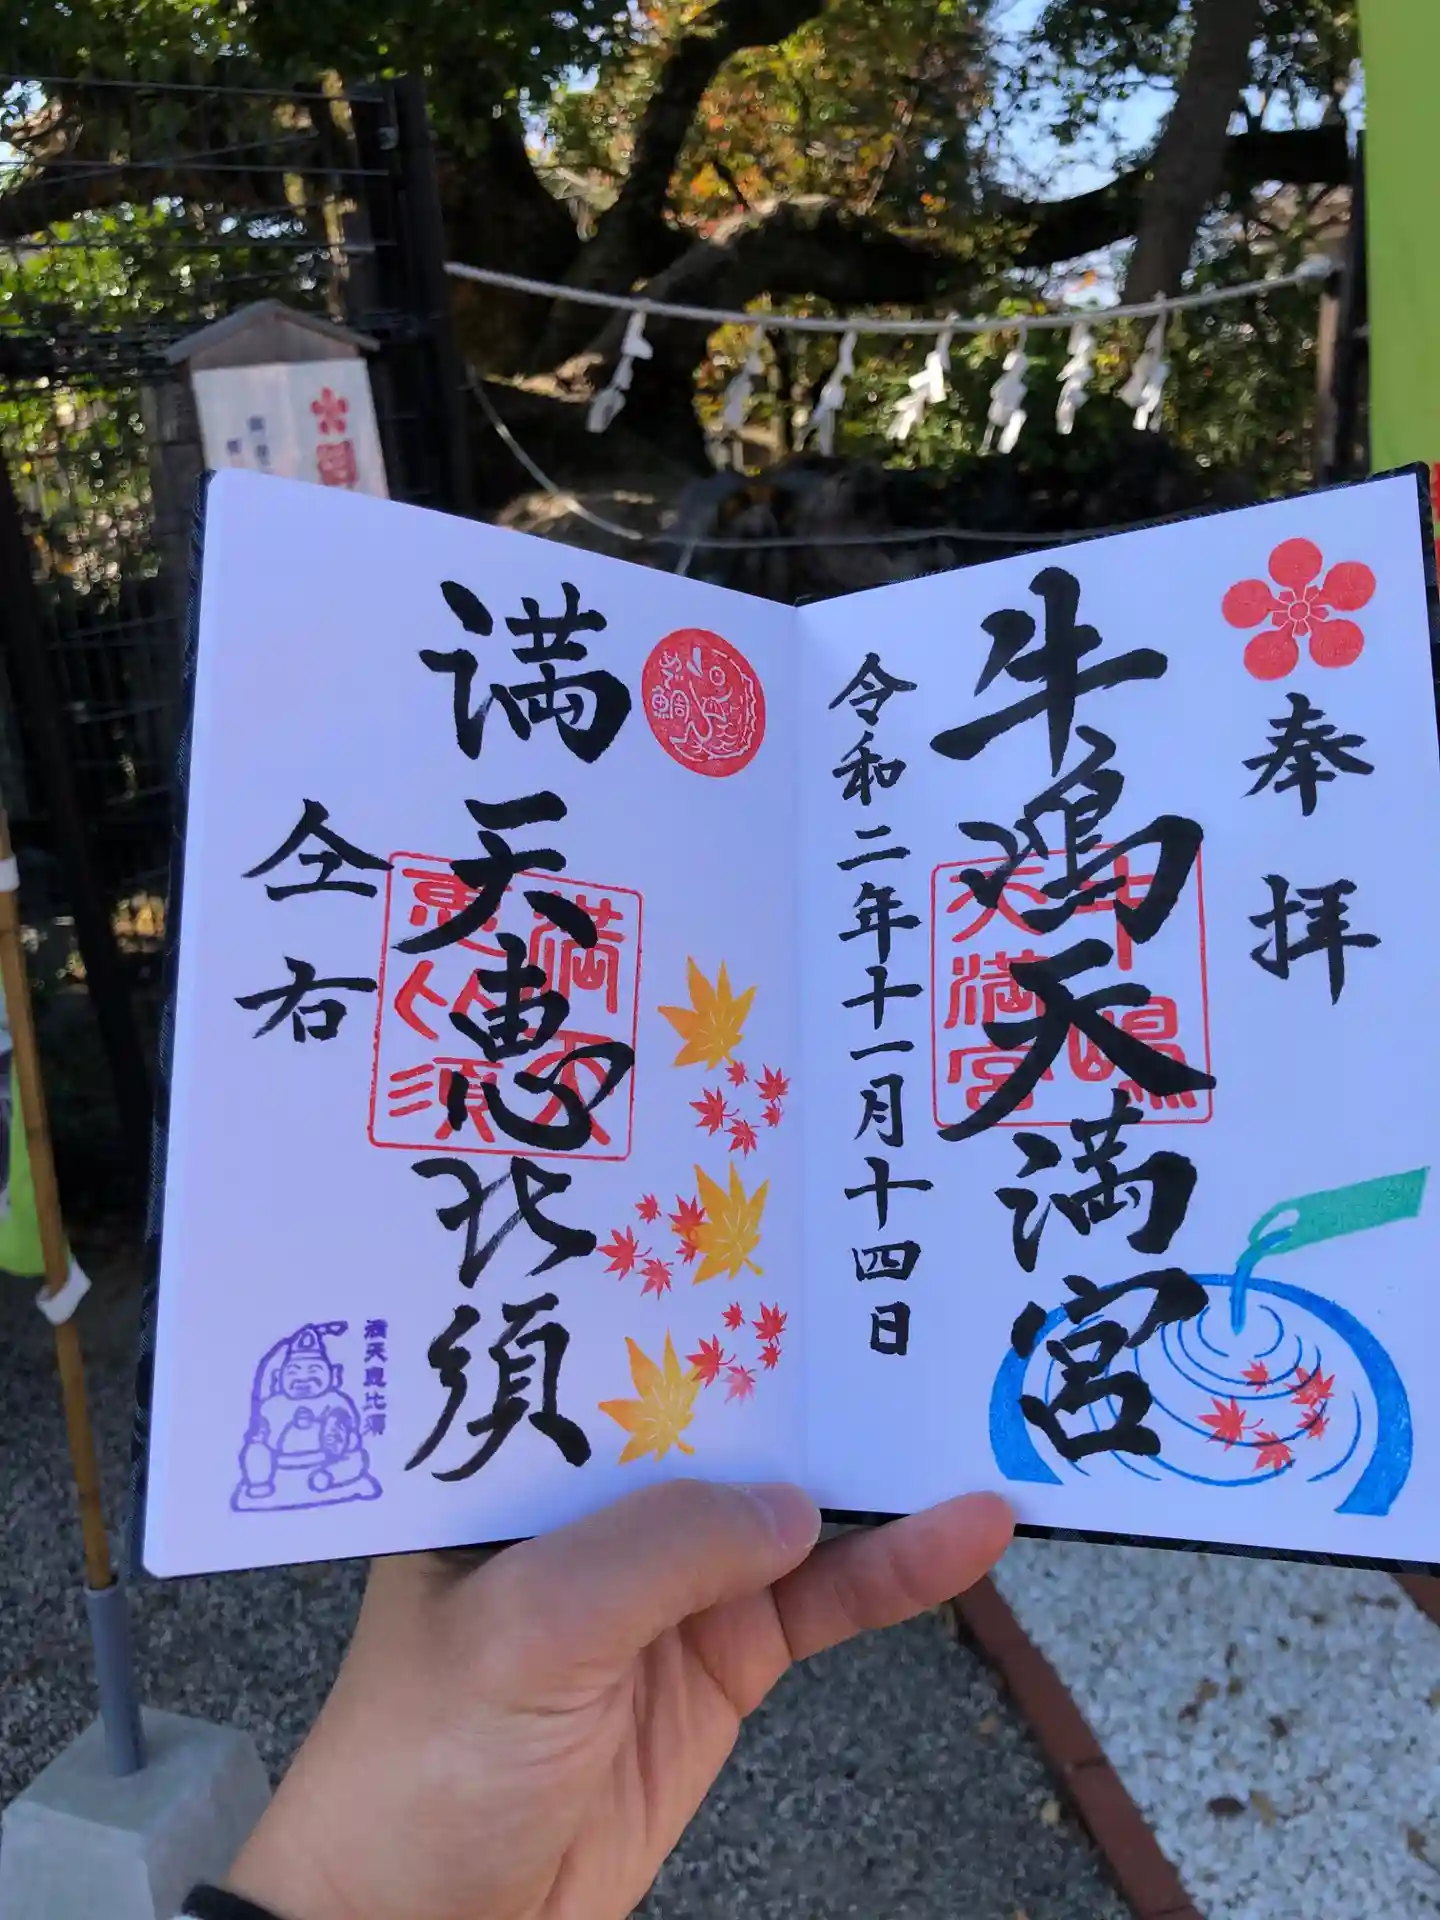 奉拝
牛嶋天満宮
牛嶋
天満宮
令和二年十一月十四日
めで鯛
満天恵比須
満天
恵比須
仝右
満天恵比須